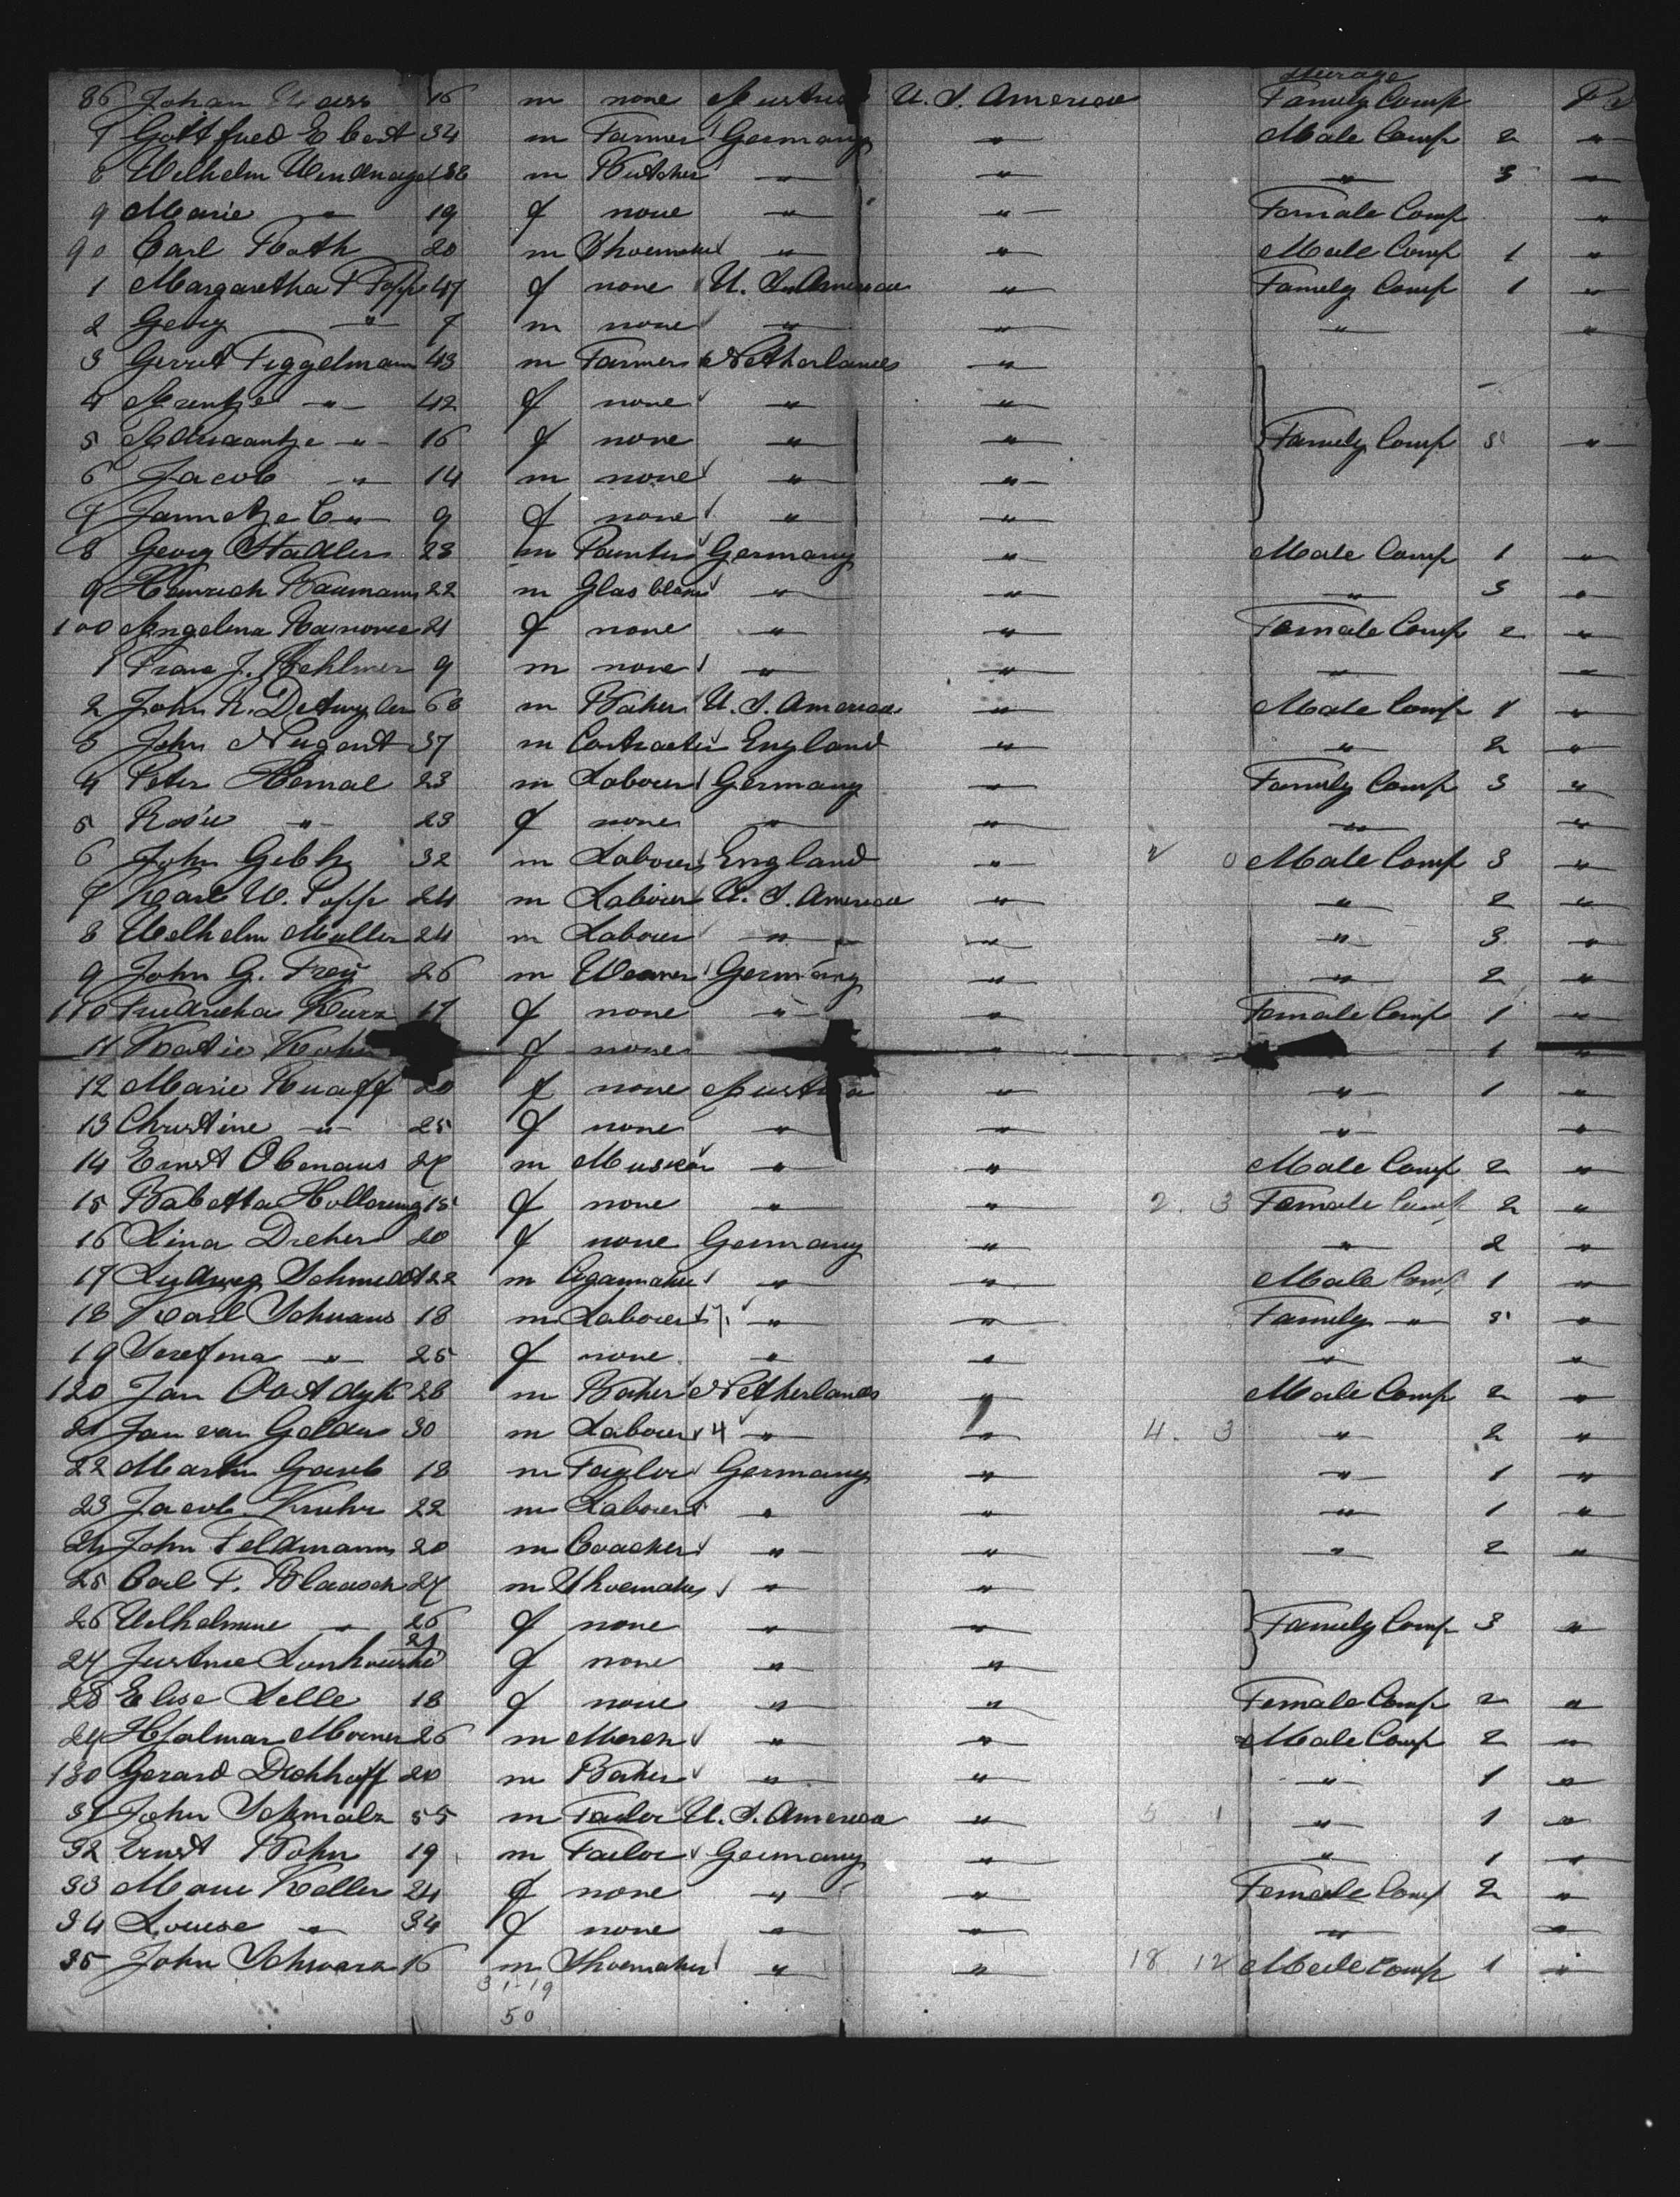 Steerage
86 Johan 16 m none Austria U. S. America Family Comp
7 Gottfried Ebert 34 m Farmer Germany " Male Comp 2 "
8 Wilhelm Wendnagel 38 m Butcher " " " 3 "
9 Marie " 19 f none " " Female Comp "
90 Carl Roth 20 m Shoemaker " " Male Comp 1 "
1 Margaretha P Popp 47 f none U. S. America " Family Comp 1 "
2 Georg " 7 m none " " " "
3 Gerrit Figgelmann 43 m Farmer Netherlands "
4 Arentje " 42 f none " "
5 Adriaantje " 16 f none " " Family Comp 5 "
6 Jacob " 14 m none " "
7 Jannetje C " 9 f none " "
8 Georg Stadler 23 m Painter Germany " Male Comp 1 "
9 Heinrich Baumann 22 m Glas blower " " " 3 "
100 Angelina 21 f none " " Female Comp 2 "
1 Franz J. 9 m none " " " "
2 John R. Detwyler 68 m Baker U. S. America " Male Comp 1 "
3 John Nugent 37 m Contractor England " " 2 "
4 Peter Hemal 23 m Labourer Germany " Family Comp 3 "
5 Rosie " 23 f none " " " "
6 John Gebh 32 m Labourer England " 2 0 Male Comp 3 "
7 Karl W. Popp 24 m Labourer U. S. America " " 2 "
8 Wilhelm Müller 24 m Labourer " " " 3 "
9 John G. Frey 26 m Weaver Germany " " 2 "
110 Friedricka Kurz 17 f none " " Female Comp 1 "
11 Katie Kohn f none " 1 "
12 Marie Ruaff 20 f none Austria " " 1 "
13 Christine " 25 f none " " " "
14 Ernst Obenaus m Musician " " Male Comp 2 "
15 Babetta Hollering 15 f none " " 2. 3 Female Comp 2 "
16 Lina Dreher 20 f none Germany " " 2 "
17 Ludwig Schmidt 22 m Cigarmaker " " Male Comp 1 "
18 Karl Schwans 18 m Labourer " " Family " 5 "
19 Josefina " 25 f none " " " "
120 Jan Oostdyk 28 m Baker Netherlands " Male Comp 2 "
21 Jan van Gelder 30 m Labourer 4 " " 4. 3 " 2 "
22 Martin Gaub 18 m Taylor Germany " " 1 "
23 Jacob Kruhr 22 m Labourer " " " 1 "
24 John Feldmann 20 m " " " 2 "
25 Carl F. Blaasch 27 m Shoemaker " "
26 Wilhelmine " 26 f none " " Family Comp 3 "
27 Justine 21 f none " "
28 Elise Lelle 18 f none " " Female Comp 2 "
29 Hjalmar Morner 26 m Merch " " Male Comp 2 "
130 Gerard Dickhoff 20 m Baker " " " 1 "
31 John Schmalz 55 m Tailor U. S. America " 5 1 " 1 "
32 Ernst Bohn 19 m Tailor Germany " " 1 "
33 Marie Keller 24 f none " " Female Comp 2 "
34 Louise " 34 f none " " " "
35 John Schwarz 16 m Shoemaker " " 18. 12 Male Comp 1 "
31-19
50